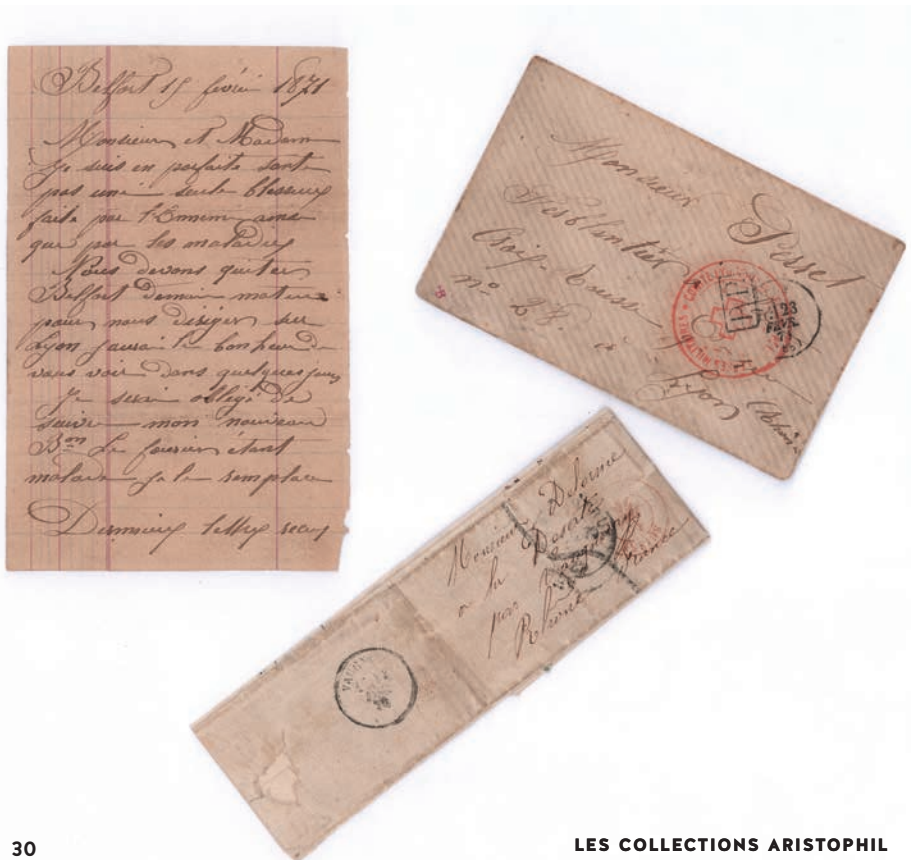 Belfort 15 février 1871
Monsieur et Madam
Je suis en parfaite santé
pas une seule blessure
faite par l'Ennemi ainsi
que par les maladies
Nous devons quitter
Belfort demain matin
pour nous diriger sur
Lyon j'aurai le bonheur de
vous voir dans quelques jours
Je serai obligé de
suivre mon nouveau
Bon Le fourrier étant
malade je le remplace
Dernières lettres
Monsieur Pesset
Ferblantier
n° 28
Lyon Rhône
23
FEVR.
PD
Monsieur Delorme
a la
par
Rhône France
30
LES COLLECTIONS ARISTOPHIL